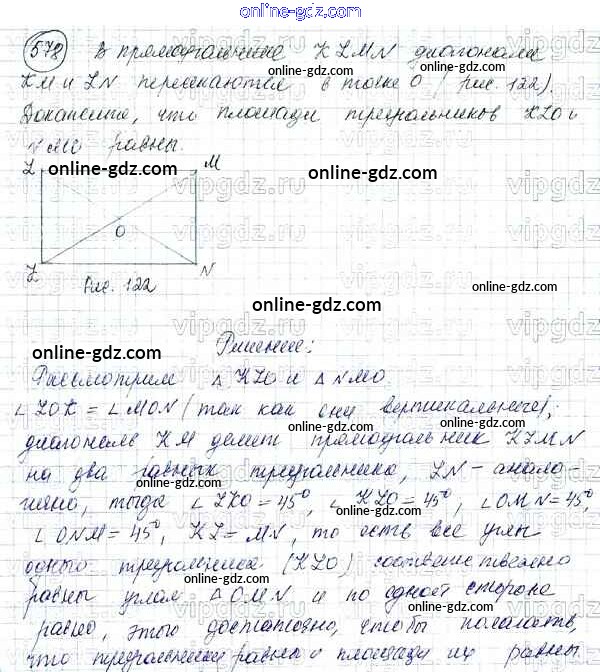 online-gdz.com
578 В прямоугольнике KLMN диагонали
online-gdz.com
KM и LN пересекаются в точке O (рис. 122).
Докажите, что площади треугольников KLO и
NMO равны.
online-gdz.com online-gdz.com
L M
O
L N
Рис. 122
online-gdz.com
online-gdz.com
Решение:
online-gdz.com
Рассмотрим △ KLO и △ NMO.
∠ LOK = ∠ MON (так как они вертикальные),
online-gdz.com
диагональ KM делит прямоугольник KLMN
online-gdz.com
на два равных треугольника, LN – анало-
гично, тогда ∠ LKO = 45°, ∠ KLO = 45°, ∠ OMN = 45°,
online-gdz.com
∠ ONM = 45°, KL = MN, то есть все углы
online-gdz.com
одного треугольника (KLO) соответственно
online-gdz.com
равны углам △ OMN и по одной стороне
online-gdz.com
равно, этого достаточно, чтобы полагать,
online-gdz.com
что треугольники равны и площади их равны.
online-gdz.com